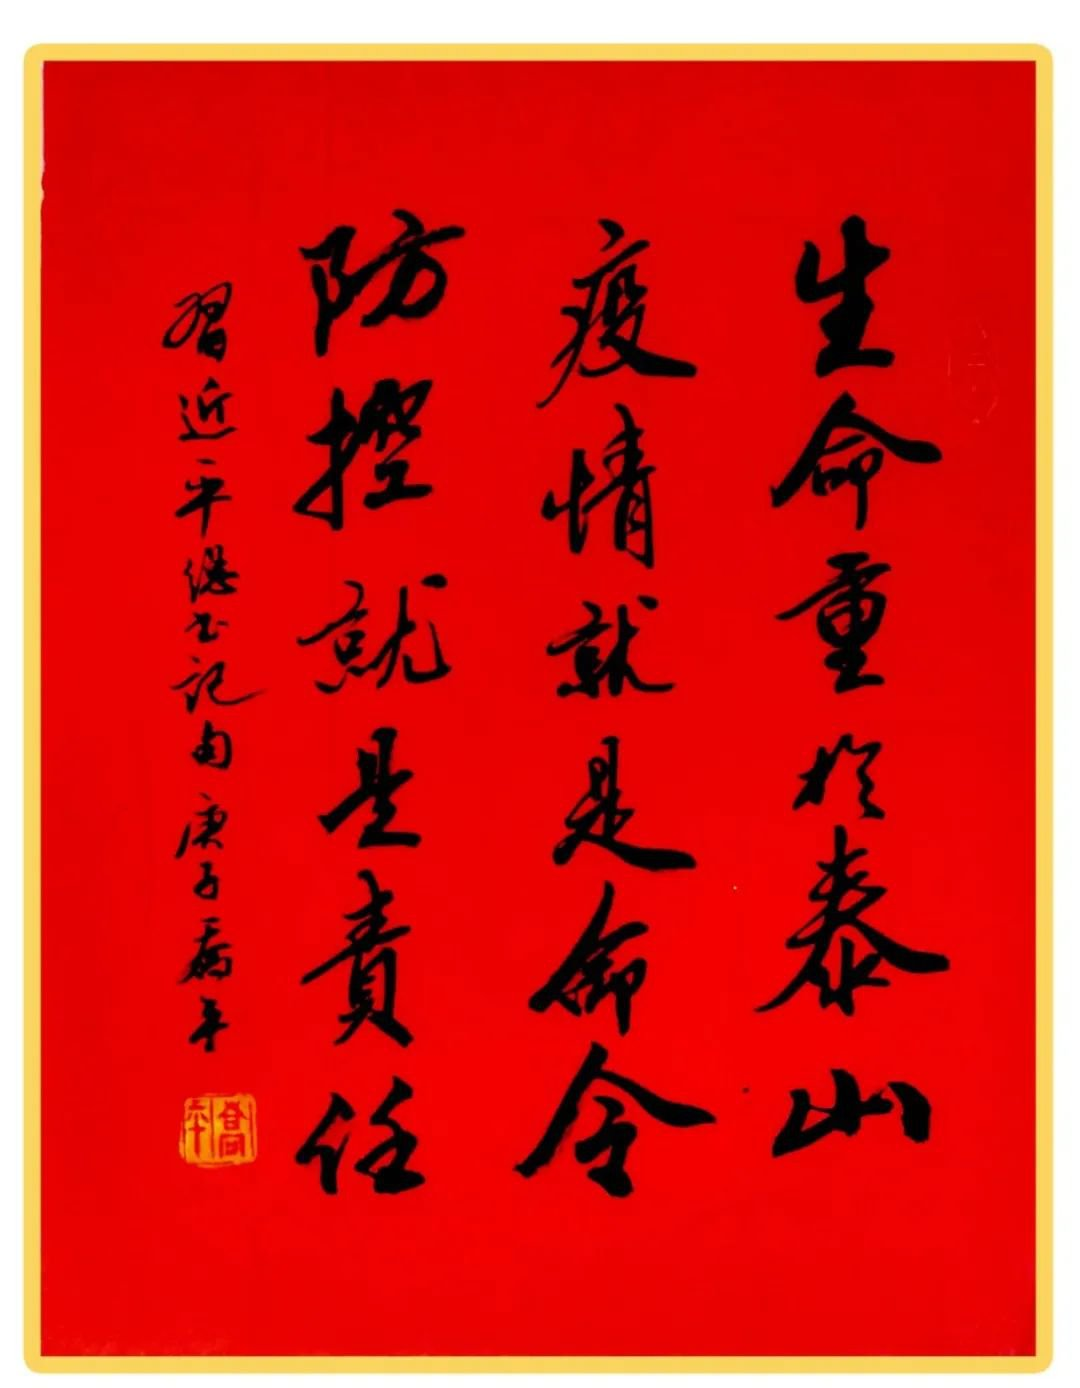 生命重於泰山
疫情就是命令
防控就是責任
習近平總書記句 庚子喬平
喬平